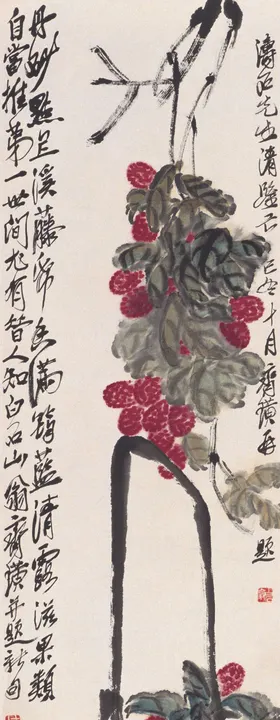 丹砂點上溪藤紙香滿筠籃清露滋果類
自當推第一世間尤有昔人知白石山翁齊璜并題新句
濤石先生清 乙 十月齊璜再
題